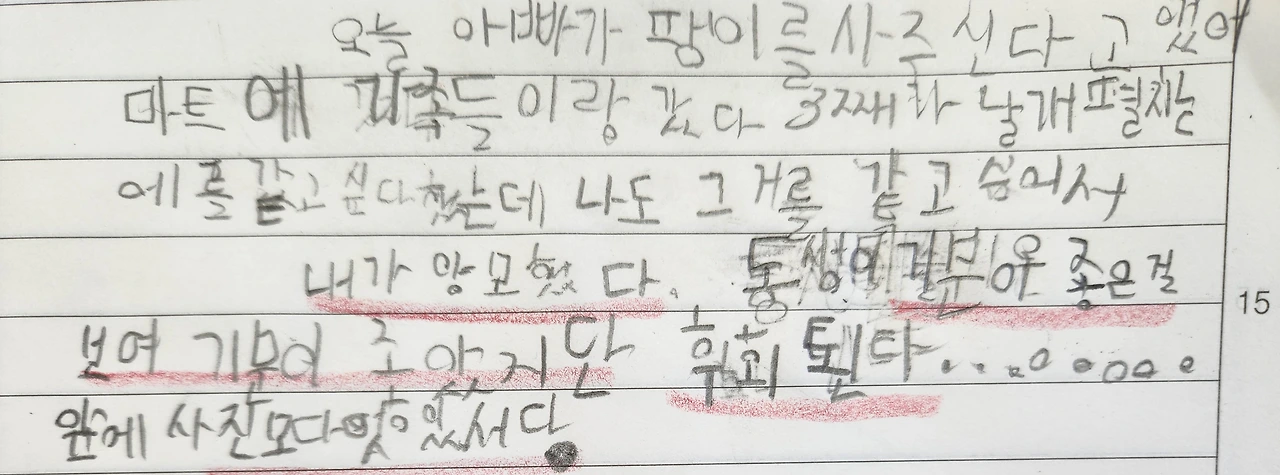 오늘 아빠가 팡이를 사주신다고 했어
마트에 가족들이랑 갔다 3째가 날개 펼치는
에를 갇고 싶다했는데 나도 그거를 갇고 십어서
내가 양모했다. 동생의 기분이 좋은걸
보여 기분이 조앗지만 후회 됀다........
앞에 사진보다 있서다.
15